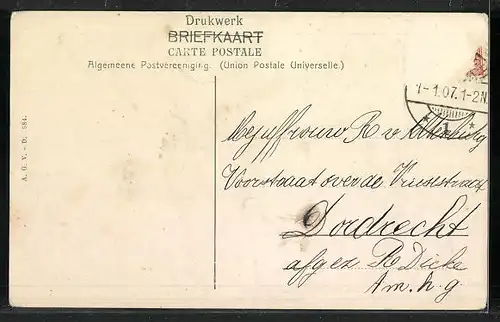 Drukwerk
BRIEFKAART
CARTE POSTALE
Algemeene Postvereeniging. (Union Postale Universelle.)
1-1.07.1-2N
1
A. G. V. - D. 684.
Mejuffrouw R v
Voorstraat over de
Dordrecht
afgez R Dicke
Am. h. g